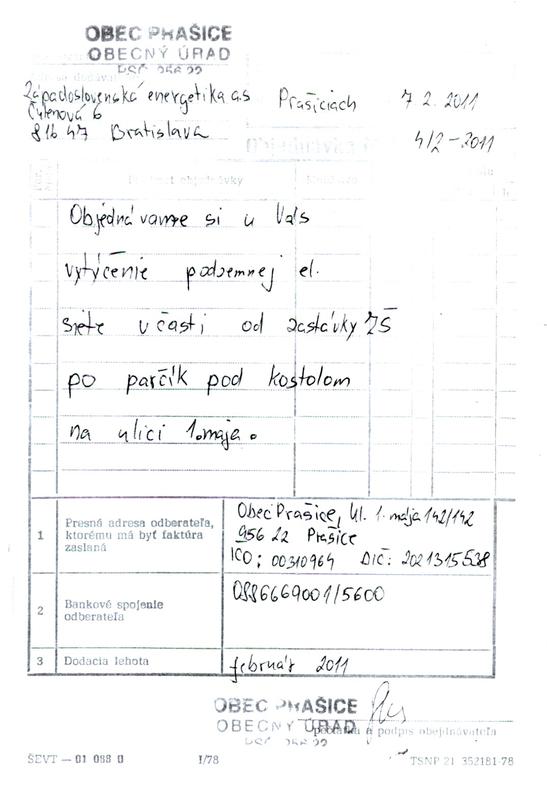 OBEC PRAŠICE
OBECNÝ ÚRAD
PSČ 956 22
Západoslovenská energetika a.s Prašiciach 7 2. 2011
Čulenová 6
816 47 Bratislava 4/2-2011
Objednávka
Objednávame si u Vás
vytýčenie podzemnej el.
siete v časti od zastávky ZŠ
po parčík pod kostolom
na ulici 1.maja.
1 Presná adresa odberateľa, ktorému má byť faktúra zaslaná
Obec Prašice, Ul. 1. mája 142/142
956 22 Prašice
IČO: 00310964 DIČ: 2021315538
2 Bankové spojenie odberateľa
0886669001/5600
3 Dodacia lehota február 2011
OBEC PRAŠICE
OBECNÝ ÚRAD
PSČ 956 22
a podpis objednávateľa
ŠEVT — 01 088 0 I/78 TSNP 21 352181-78